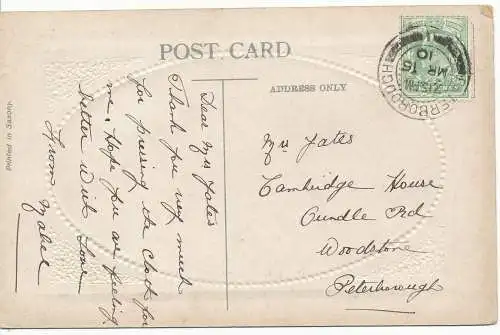 POST CARD
ADDRESS ONLY
Printed in Saxony.
PETERBOROUGH
MR 15
10
Dear Mrs Yates
Thank you very much
for pressing the cloth for
me. Hope you are feeling
better With Love
From Mabel
Mrs Yates
Cambridge House
Oundle Rd
Woodstone
Peterborough